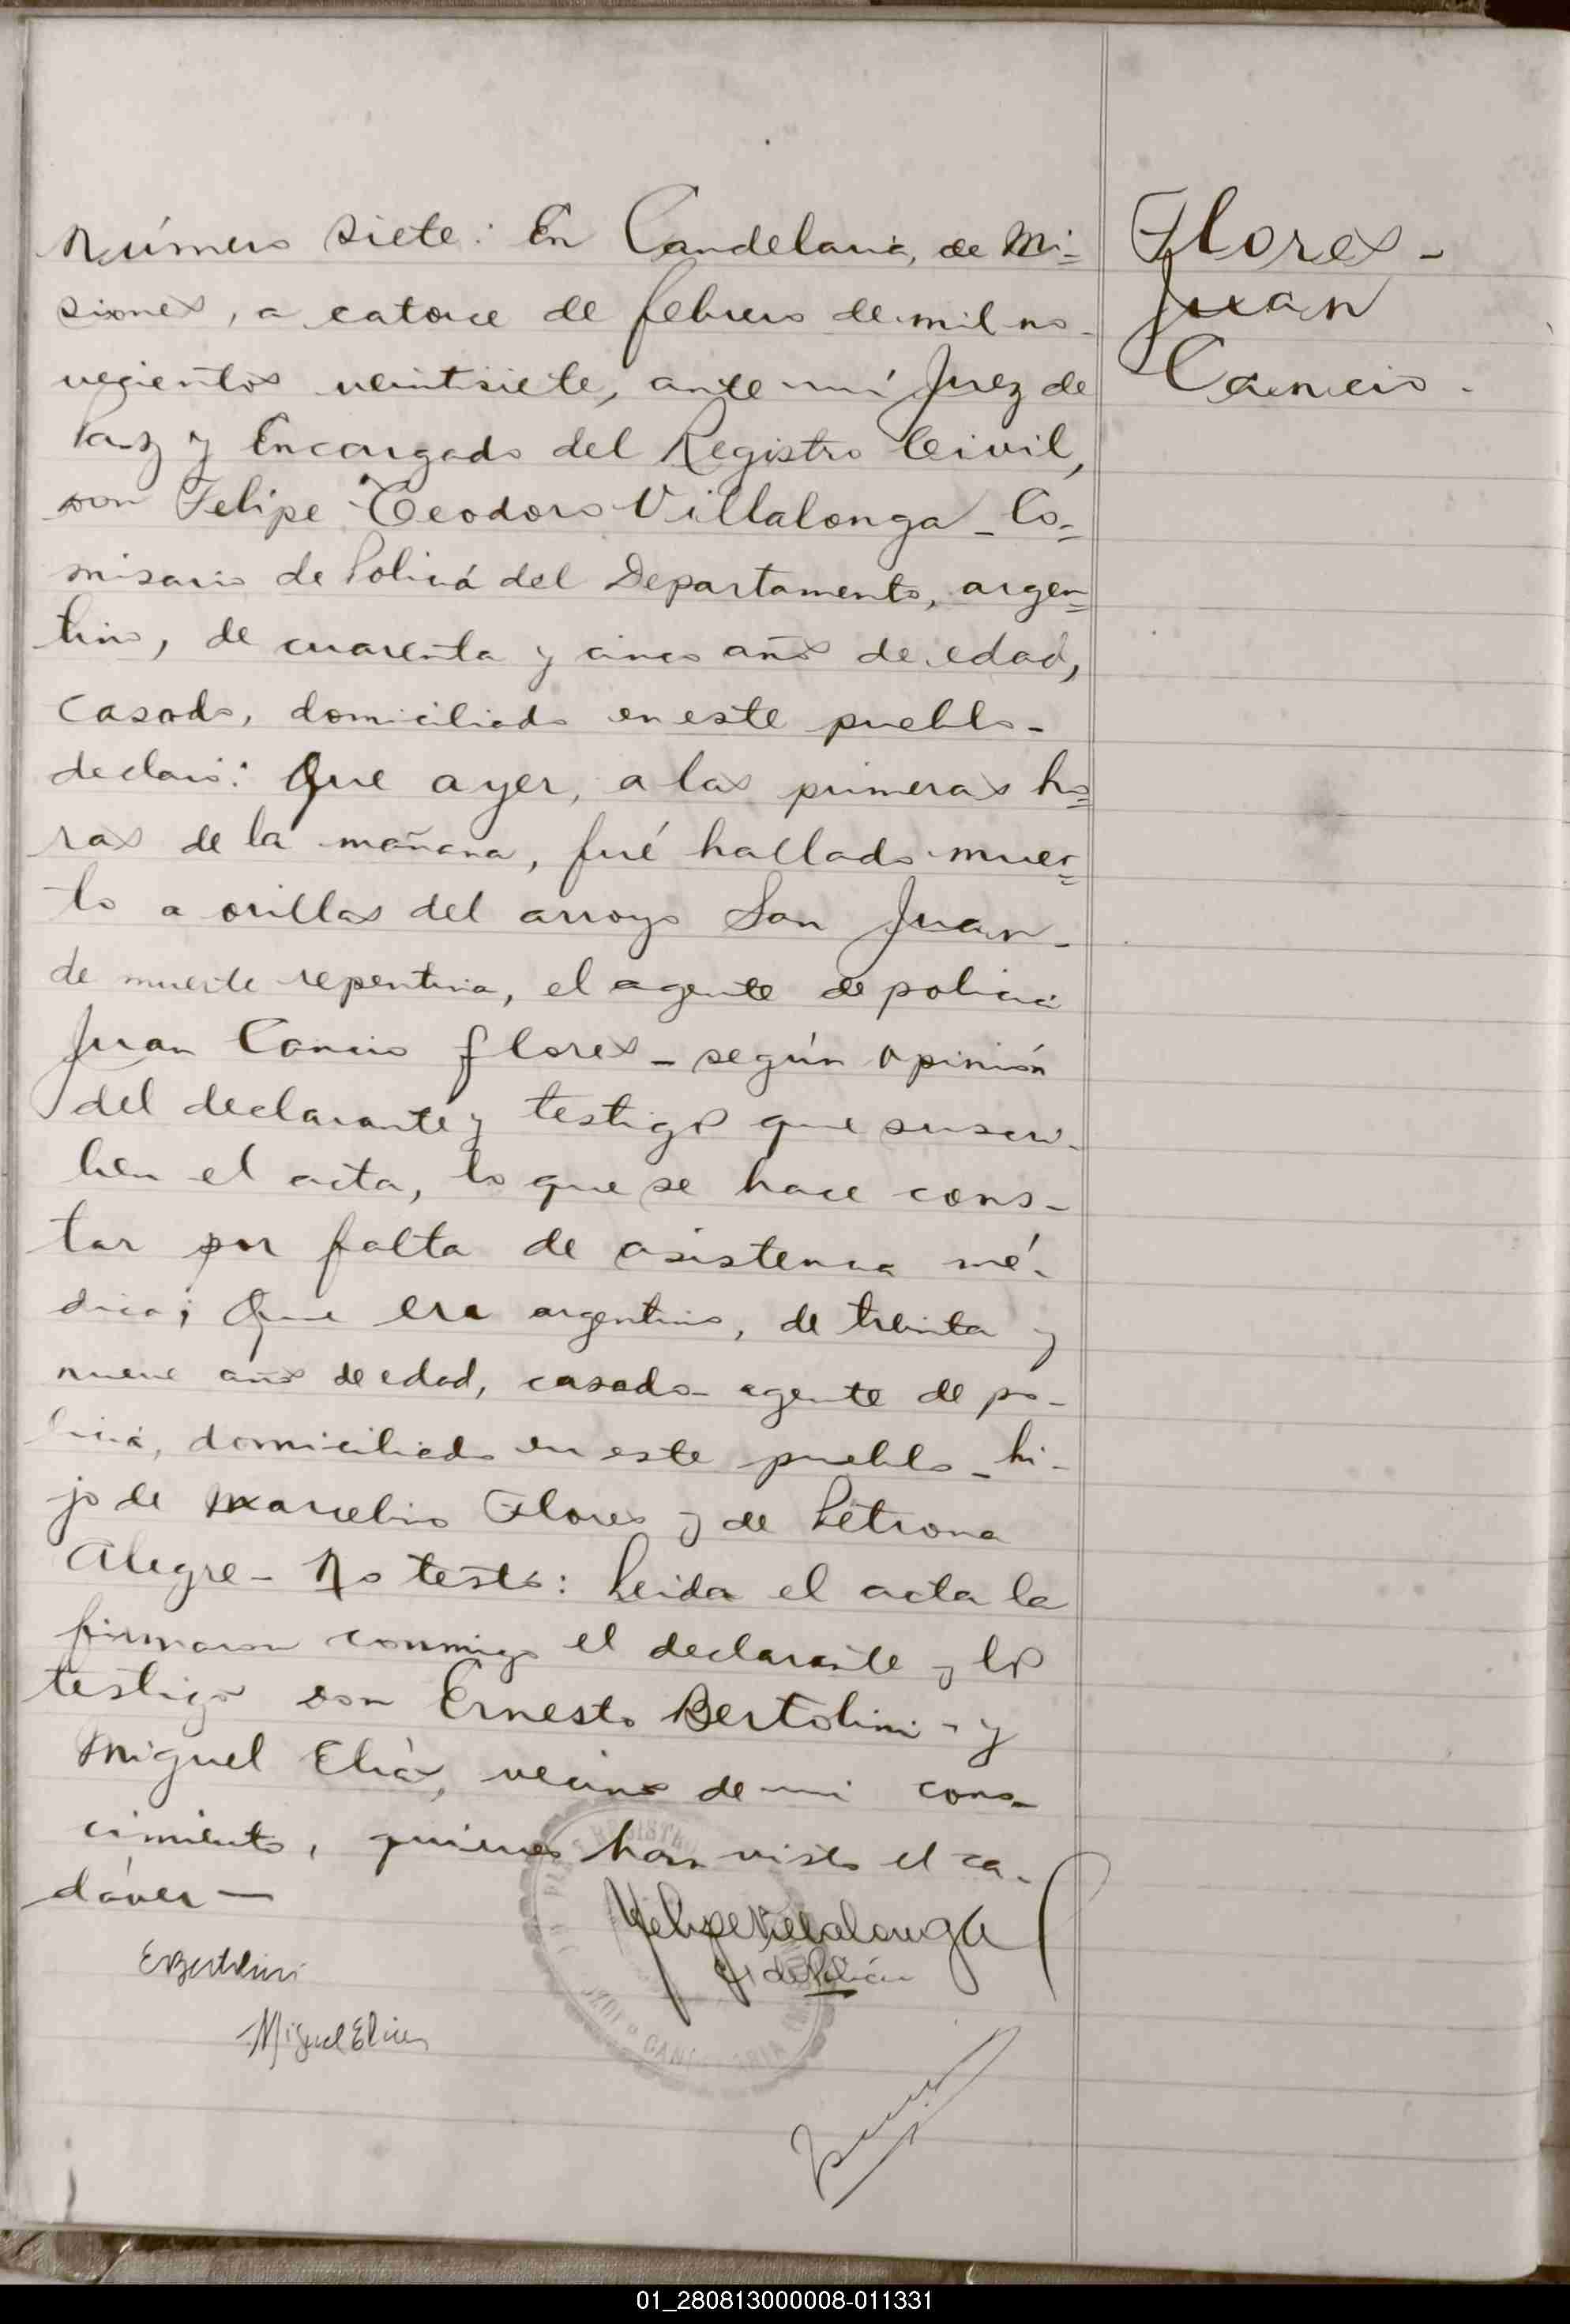 Número siete: En Candelaria, de Mi=
siones, a catorce de febrero de mil no-
vecientos veintisiete, ante mí Juez de
Paz y Encargado del Registro Civil,
don Felipe Teodoro Villalonga - Co=
misario de Policía del Departamento, argen=
tino, de cuarenta y cinco años de edad,
casado, domiciliado en este pueblo -
declaró: Que ayer, a las primeras ho=
ras de la mañana, fué hallado muer=
to a orillas del arroyo San Juan -
de muerte repentina, el agente de policía
Juan Cancio Flores - según opinión
del declarante y testigos que suscri-
ben el acta, lo que se hace cons-
tar por falta de asistencia mé-
dica; Que era argentino, de treinta y
nueve años de edad, casado - agente de po-
licía, domiciliado en este pueblo - hi-
jo de Marcelino Flores y de Petrona
Alegre - No testó: Leida el acta la
firmaron conmigo el declarante y los
testigos don Ernesto Bertolini - y
Miguel Elías, vecinos de mi cono-
cimiento, quienes han visto el ca-
dáver —
Flores -
Juan
Cancio -
Felipe Villalonga
de Policía
EBertolini
Miguel Elias
REGISTRO
CANDELARIA
01_280813000008-011331